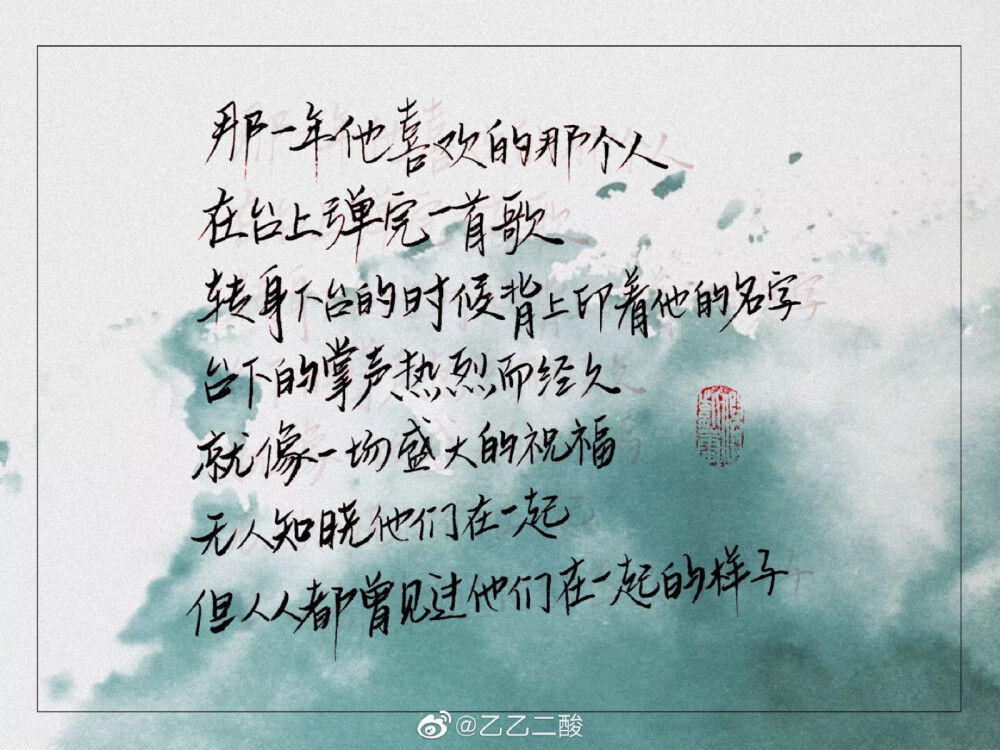 那一年他喜欢的那个人
在台上弹完一首歌
转身下台的时候背上印着他的名字
台下的掌声热烈而经久
就像一场盛大的祝福
无人知晓他们在一起
但人人都曾见过他们在一起的样子
@乙乙二酸